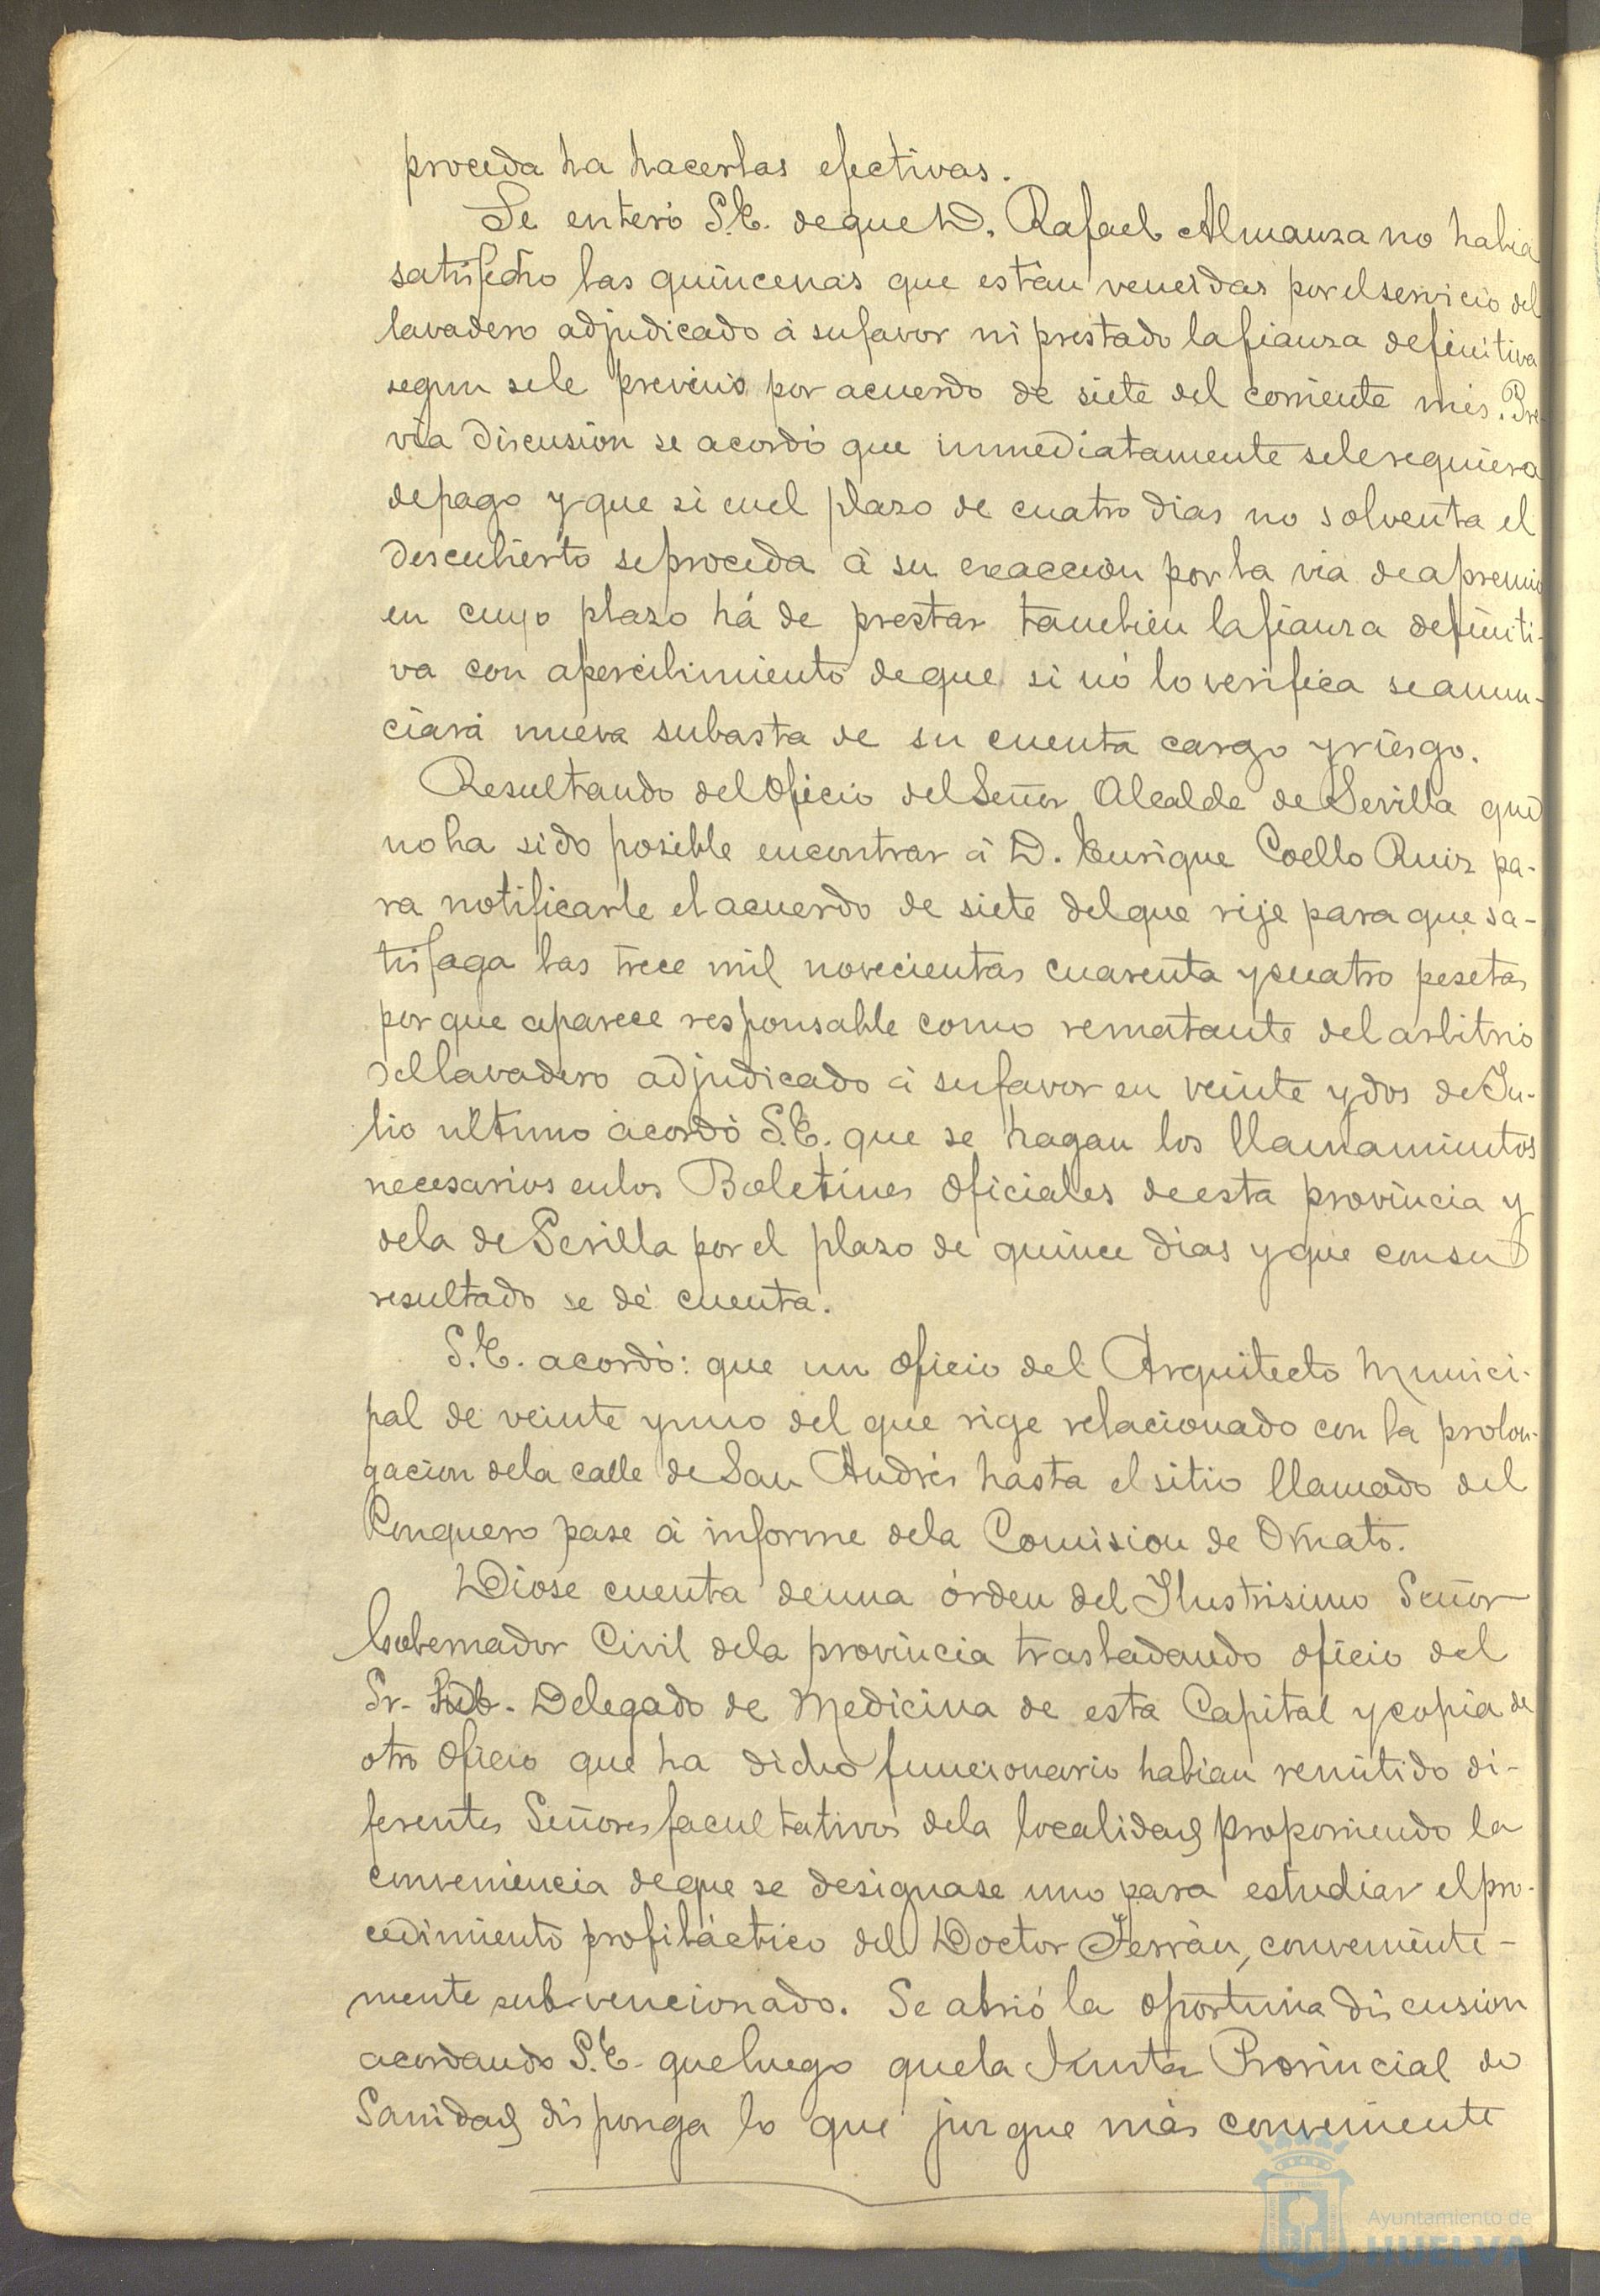 proceda ha hacerlas efectivas.
Se enteró S.E. de que D. Rafael Almanza no habia
satisfecho las quincenas que están vencidas por el servicio del
lavadero adjudicado á su favor ni prestado la fianza definitiva
segun se le previno por acuerdo de siete del corriente mes. Pre-
via discusion se acordó que inmediatamente se le requiera
de pago y que si en el plazo de cuatro dias no solventa el
descubierto se proceda á su exacción por la via de apremio
en cuyo plazo há de prestar tambien la fianza definiti-
va con apercibimiento de que si nó lo verifica se anun-
ciará nueva subasta de su cuenta cargo y riesgo.
Resultando del Oficio del Señor Alcalde de Sevilla que
no ha sido posible encontrar á D. Enrique Coello Ruiz pa-
ra notificarle el acuerdo de siete del que rije para que sa-
tisfaga las trece mil novecientas cuarenta y cuatro pesetas
por que aparece responsable como rematante del arbitrio
del lavadero adjudicado á su favor en veinte y dos de Ju-
lio ultimo acordó S.E. que se hagan los llamamientos
necesarios en los Boletines Oficiales de esta provincia y
de la de Sevilla por el plazo de quince dias y que con su
resultado se dé cuenta.
S.E. acordó: que un oficio del Arquitecto Munici-
pal de veinte y uno del que rige relacionado con la prolon-
gacion de la calle de San Andrés hasta el sitio llamado del
Conquero pase á informe de la Comision de Ornato.
Diose cuenta de una órden del Ilustrisimo Señor
Gobernador Civil de la provincia trasladando oficio del
Sr. Sub. Delegado de Medicina de esta Capital y copia de
otro oficio que ha dicho funcionario habian remitido di-
ferentes Señores facultativos de la localidad proponiendo la
conveniencia de que se designase uno para estudiar el pro-
cedimiento profiláctico del Doctor Ferrán, conveniente-
mente subvencionado. Se abrió la oportuna discusion
acordando S.E. que luego que la Junta Provincial de
Sanidad disponga lo que juzgue más conveniente
Ayuntamiento de
HUELVA